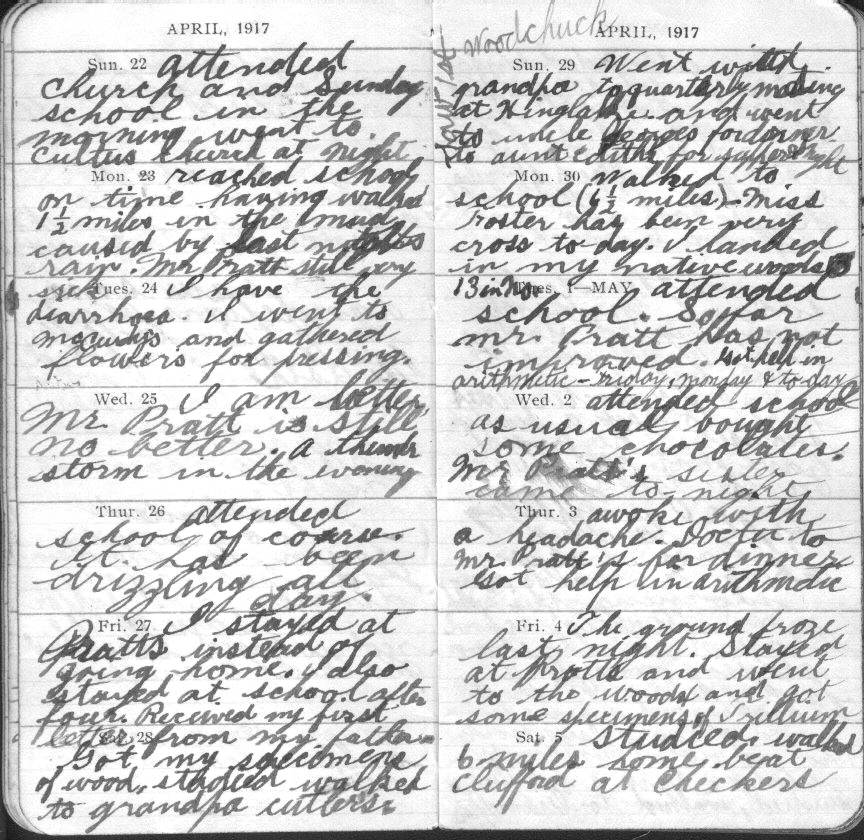 APRIL, 1917
Sun. 22 attended
church and Sunday
school in the
morning went to
cultus church at night
Mon. 23 reached school
on time having walked
1 1/2 miles in the mud
caused by last night's
rain. Mr Pratt still very
sick
Tues. 24 I have the
diarrhoea. I went to
and gathered
flowers for pressing.
Wed. 25 I am better
Mr. Pratt is still
no better. a thunder
storm in the evening
Thur. 26 attended
school of coarse.
it has been
drizzling all
day.
Fri. 27 I stayed at
Pratts instead of
going home. I also
stayed at school after
four. Received my first
letter from my father
Sat. 28
Got my specimens
of wood, studied walked
to grandpa cutlers.
Saw 1st woodchuck
APRIL, 1917
Sun. 29 Went with
grandpa to quarterly meeting
at and went
to uncle Georges for dinner
to aunt ediths for supper & night
Mon. 30 Walked to
school (6 1/2 miles) - Miss
Foster has been very
cross to-day. I landed
in my native woods
13 in No.
Tues. 1—MAY attended
school. So far
mr. Pratt has not
improved. Got help in
arithmetic - Friday, monday & to-day
Wed. 2 attended school
as usual bought
some chocolates.
Mr Pratt's sister
came to-night
Thur. 3 awoke with
a headache. Doctor to
Mr. Pratt's for dinner
Got help in arithmetic
Fri. 4 The ground froze
last night. Stayed
at Pratts and went
to the woods and got
some specimens of Trillium
Sat. 5 Studied. walked
6 miles home beat
Clifford at checkers